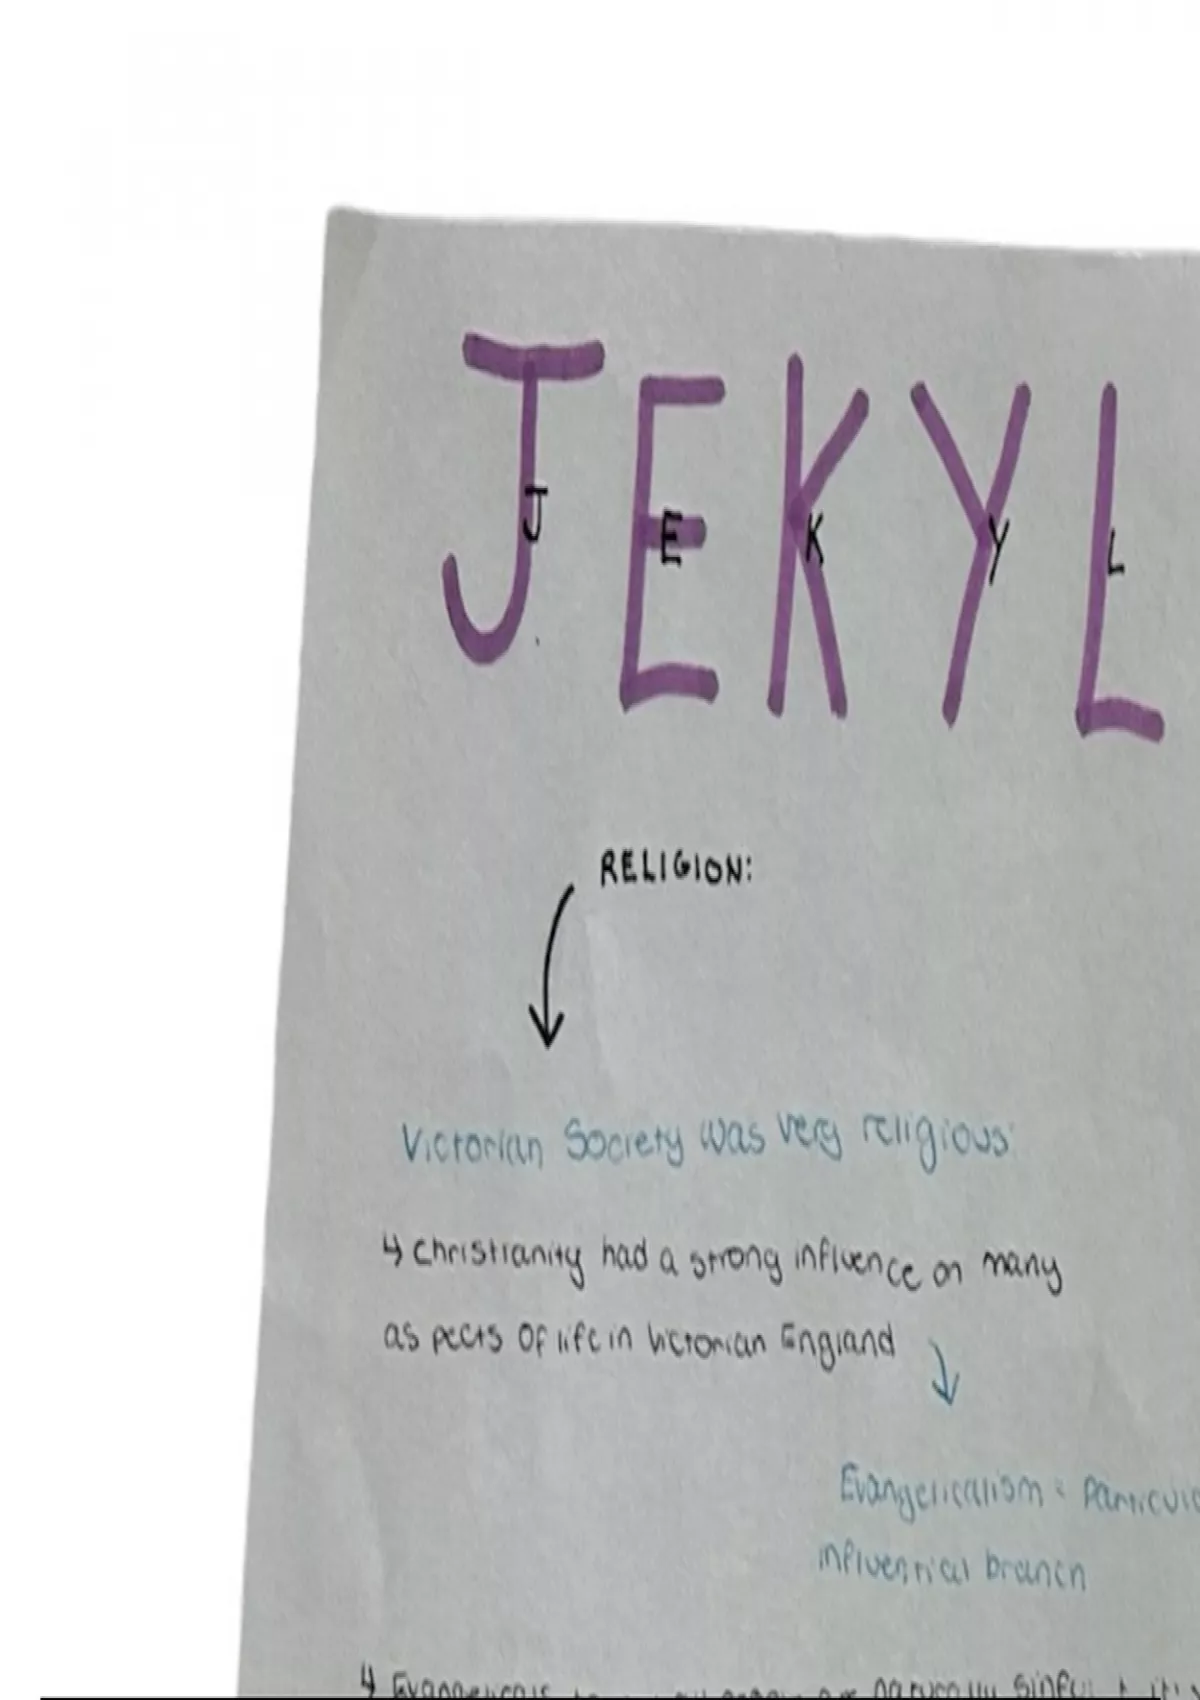 JEKYL
J E K Y L
RELIGION:
Victorian Society was very religious:
↳ Christianity had a strong influence on many
aspects of life in Victorian England
Evangelicalism = particula
influential branch
↳ Evangelicals naturally sinful +